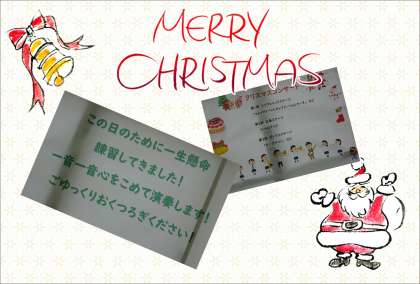 MERRY
CHRISTMAS
クリスマスコンサート
この日のために一生懸命
練習してきました!
一音一音心をこめて演奏します!
ごゆっくりおくつろぎください!